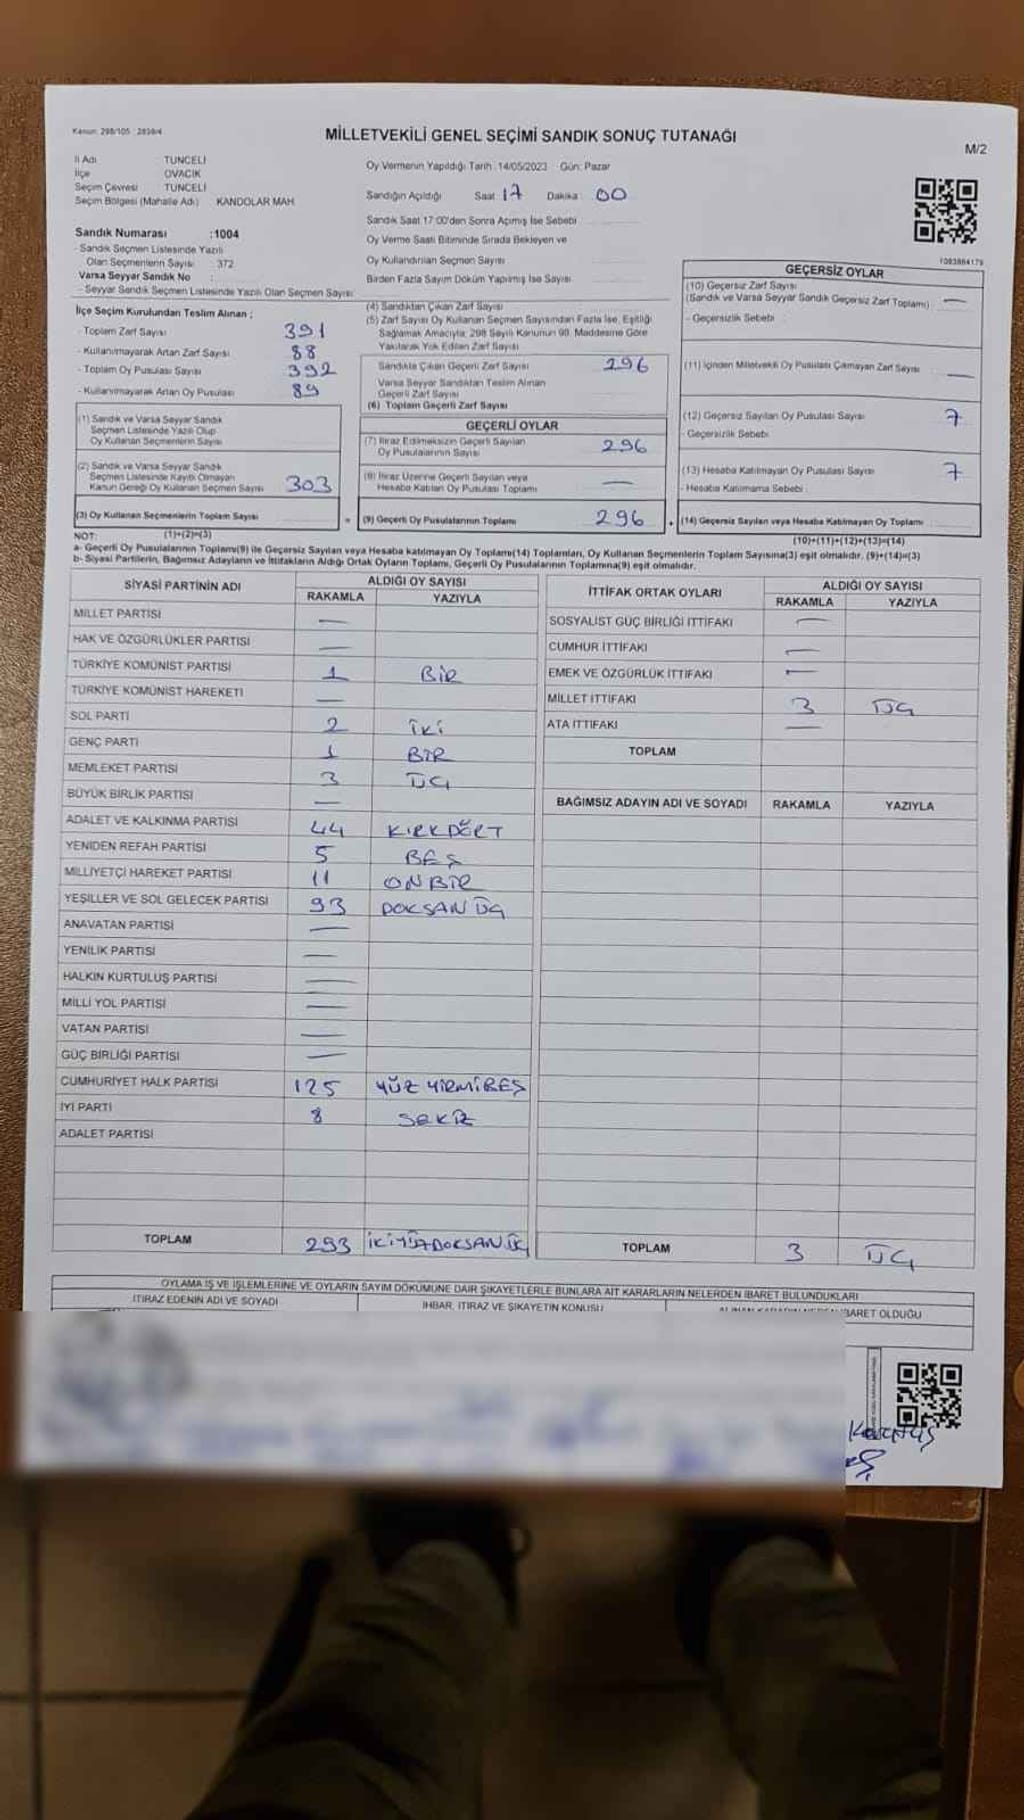 Kanun: 298/105 : 2839/4
MİLLETVEKİLİ GENEL SEÇİMİ SANDIK SONUÇ TUTANAĞI
M/2
İl Adı TUNCELİ
İlçe OVACIK
Seçim Çevresi TUNCELİ
Seçim Bölgesi (Mahalle Adı) KANDOLAR MAH.
Sandık Numarası :1004
- Sandık Seçmen Listesinde Yazılı
Olan Seçmenlerin Sayısı : 372
Varsa Seyyar Sandık No :
- Seyyar Sandık Seçmen Listesinde Yazılı Olan Seçmen Sayısı:
İlçe Seçim Kurulundan Teslim Alınan ;
- Toplam Zarf Sayısı 391
- Kullanılmayarak Artan Zarf Sayısı 88
- Toplam Oy Pusulası Sayısı 392
- Kullanılmayarak Artan Oy Pusulası 89
(1) Sandık ve Varsa Seyyar Sandık
Seçmen Listesinde Yazılı Olup
Oy Kullanan Seçmenlerin Sayısı
(2) Sandık ve Varsa Seyyar Sandık
Seçmen Listesinde Kayıtlı Olmayan
Kanun Gereği Oy Kullanan Seçmen Sayısı 303
(3) Oy Kullanan Seçmenlerin Toplam Sayısı
(1)+(2)=(3)
Oy Vermenin Yapıldığı Tarih :14/05/2023 Gün: Pazar
Sandığın Açıldığı Saat 17 Dakika : 00
Sandık Saat 17:00'den Sonra Açımış İse Sebebi
Oy Verme Saati Bitiminde Sırada Bekleyen ve
Oy Kullandırılan Seçmen Sayısı
Birden Fazla Sayım Döküm Yapılmış İse Sayısı
(4) Sandıktan Çıkan Zarf Sayısı
(5) Zarf Sayısı Oy Kullanan Seçmen Sayısından Fazla İse, Eşitliği
Sağlamak Amacıyla; 298 Sayılı Kanunun 98. Maddesine Göre
Yakılarak Yok Edilen Zarf Sayısı
Sandıkta Çıkan Geçerli Zarf Sayısı 296
Varsa Seyyar Sandıktan Teslim Alınan
Geçerli Zarf Sayısı
(6) Toplam Geçerli Zarf Sayısı
GEÇERLİ OYLAR
(7) İtiraz Edilmeksizin Geçerli Sayılan
Oy Pusulalarının Sayısı 296
(8) İtiraz Üzerine Geçerli Sayılan veya
Hesaba Katılan Oy Pusulası Toplamı —
= (9) Geçerli Oy Pusulalarının Toplamı 296 +
1083864179
GEÇERSİZ OYLAR
(10) Geçersiz Zarf Sayısı
(Sandık ve Varsa Seyyar Sandık Geçersiz Zarf Toplamı) —
- Geçersizlik Sebebi :
(11) İçinden Milletvekili Oy Pusulası Çıkmayan Zarf Sayısı —
(12) Geçersiz Sayılan Oy Pusulası Sayısı 7
- Geçersizlik Sebebi
(13) Hesaba Katılmayan Oy Pusulası Sayısı 7
- Hesaba Katılmama Sebebi :
(14) Geçersiz Sayılan veya Hesaba Katılmayan Oy Toplamı
(10)+(11)+(12)+(13)=(14)
NOT:
a- Geçerli Oy Pusulalarının Toplamı(9) ile Geçersiz Sayılan veya Hesaba katılmayan Oy Toplamı(14) Toplamları, Oy Kullanan Seçmenlerin Toplam Sayısına(3) eşit olmalıdır. (9)+(14)=(3)
b- Siyasi Partilerin, Bağımsız Adayların ve İttifakların Aldığı Ortak Oyların Toplamı, Geçerli Oy Pusulalarının Toplamına(9) eşit olmalıdır.
SİYASİ PARTİNİN ADI ALDIĞI OY SAYISI
RAKAMLA YAZIYLA
MİLLET PARTİSİ —
HAK VE ÖZGÜRLÜKLER PARTİSİ —
TÜRKİYE KOMÜNİST PARTİSİ 1 BİR
TÜRKİYE KOMÜNİST HAREKETİ —
SOL PARTİ 2 İKİ
GENÇ PARTİ 1 BİR
MEMLEKET PARTİSİ 3 ÜÇ
BÜYÜK BİRLİK PARTİSİ —
ADALET VE KALKINMA PARTİSİ 44 KIRKDÖRT
YENİDEN REFAH PARTİSİ 5 BEŞ
MİLLİYETÇİ HAREKET PARTİSİ 11 ONBİR
YEŞİLLER VE SOL GELECEK PARTİSİ 93 DOKSAN ÜÇ
ANAVATAN PARTİSİ —
YENİLİK PARTİSİ —
HALKIN KURTULUŞ PARTİSİ —
MİLLİ YOL PARTİSİ —
VATAN PARTİSİ —
GÜÇ BİRLİĞİ PARTİSİ —
CUMHURİYET HALK PARTİSİ 125 YÜZ YİRMİBEŞ
İYİ PARTİ 8 SEKİZ
ADALET PARTİSİ
TOPLAM 293 İKİYÜZDOKSAN ÜÇ
İTTİFAK ORTAK OYLARI ALDIĞI OY SAYISI
RAKAMLA YAZIYLA
SOSYALİST GÜÇ BİRLİĞİ İTTİFAKI —
CUMHUR İTTİFAKI —
EMEK VE ÖZGÜRLÜK İTTİFAKI —
MİLLET İTTİFAKI 3 ÜÇ
ATA İTTİFAKI —
TOPLAM
BAĞIMSIZ ADAYIN ADI VE SOYADI RAKAMLA YAZIYLA
TOPLAM 3 ÜÇ
OYLAMA İŞ VE İŞLEMLERİNE VE OYLARIN SAYIM DÖKÜMÜNE DAİR ŞİKAYETLERLE BUNLARA AİT KARARLARIN NELERDEN İBARET BULUNDUKLARI
İTİRAZ EDENİN ADI VE SOYADI
İHBAR, İTİRAZ VE ŞİKAYETİN KONUSU
İBARET OLDUĞU